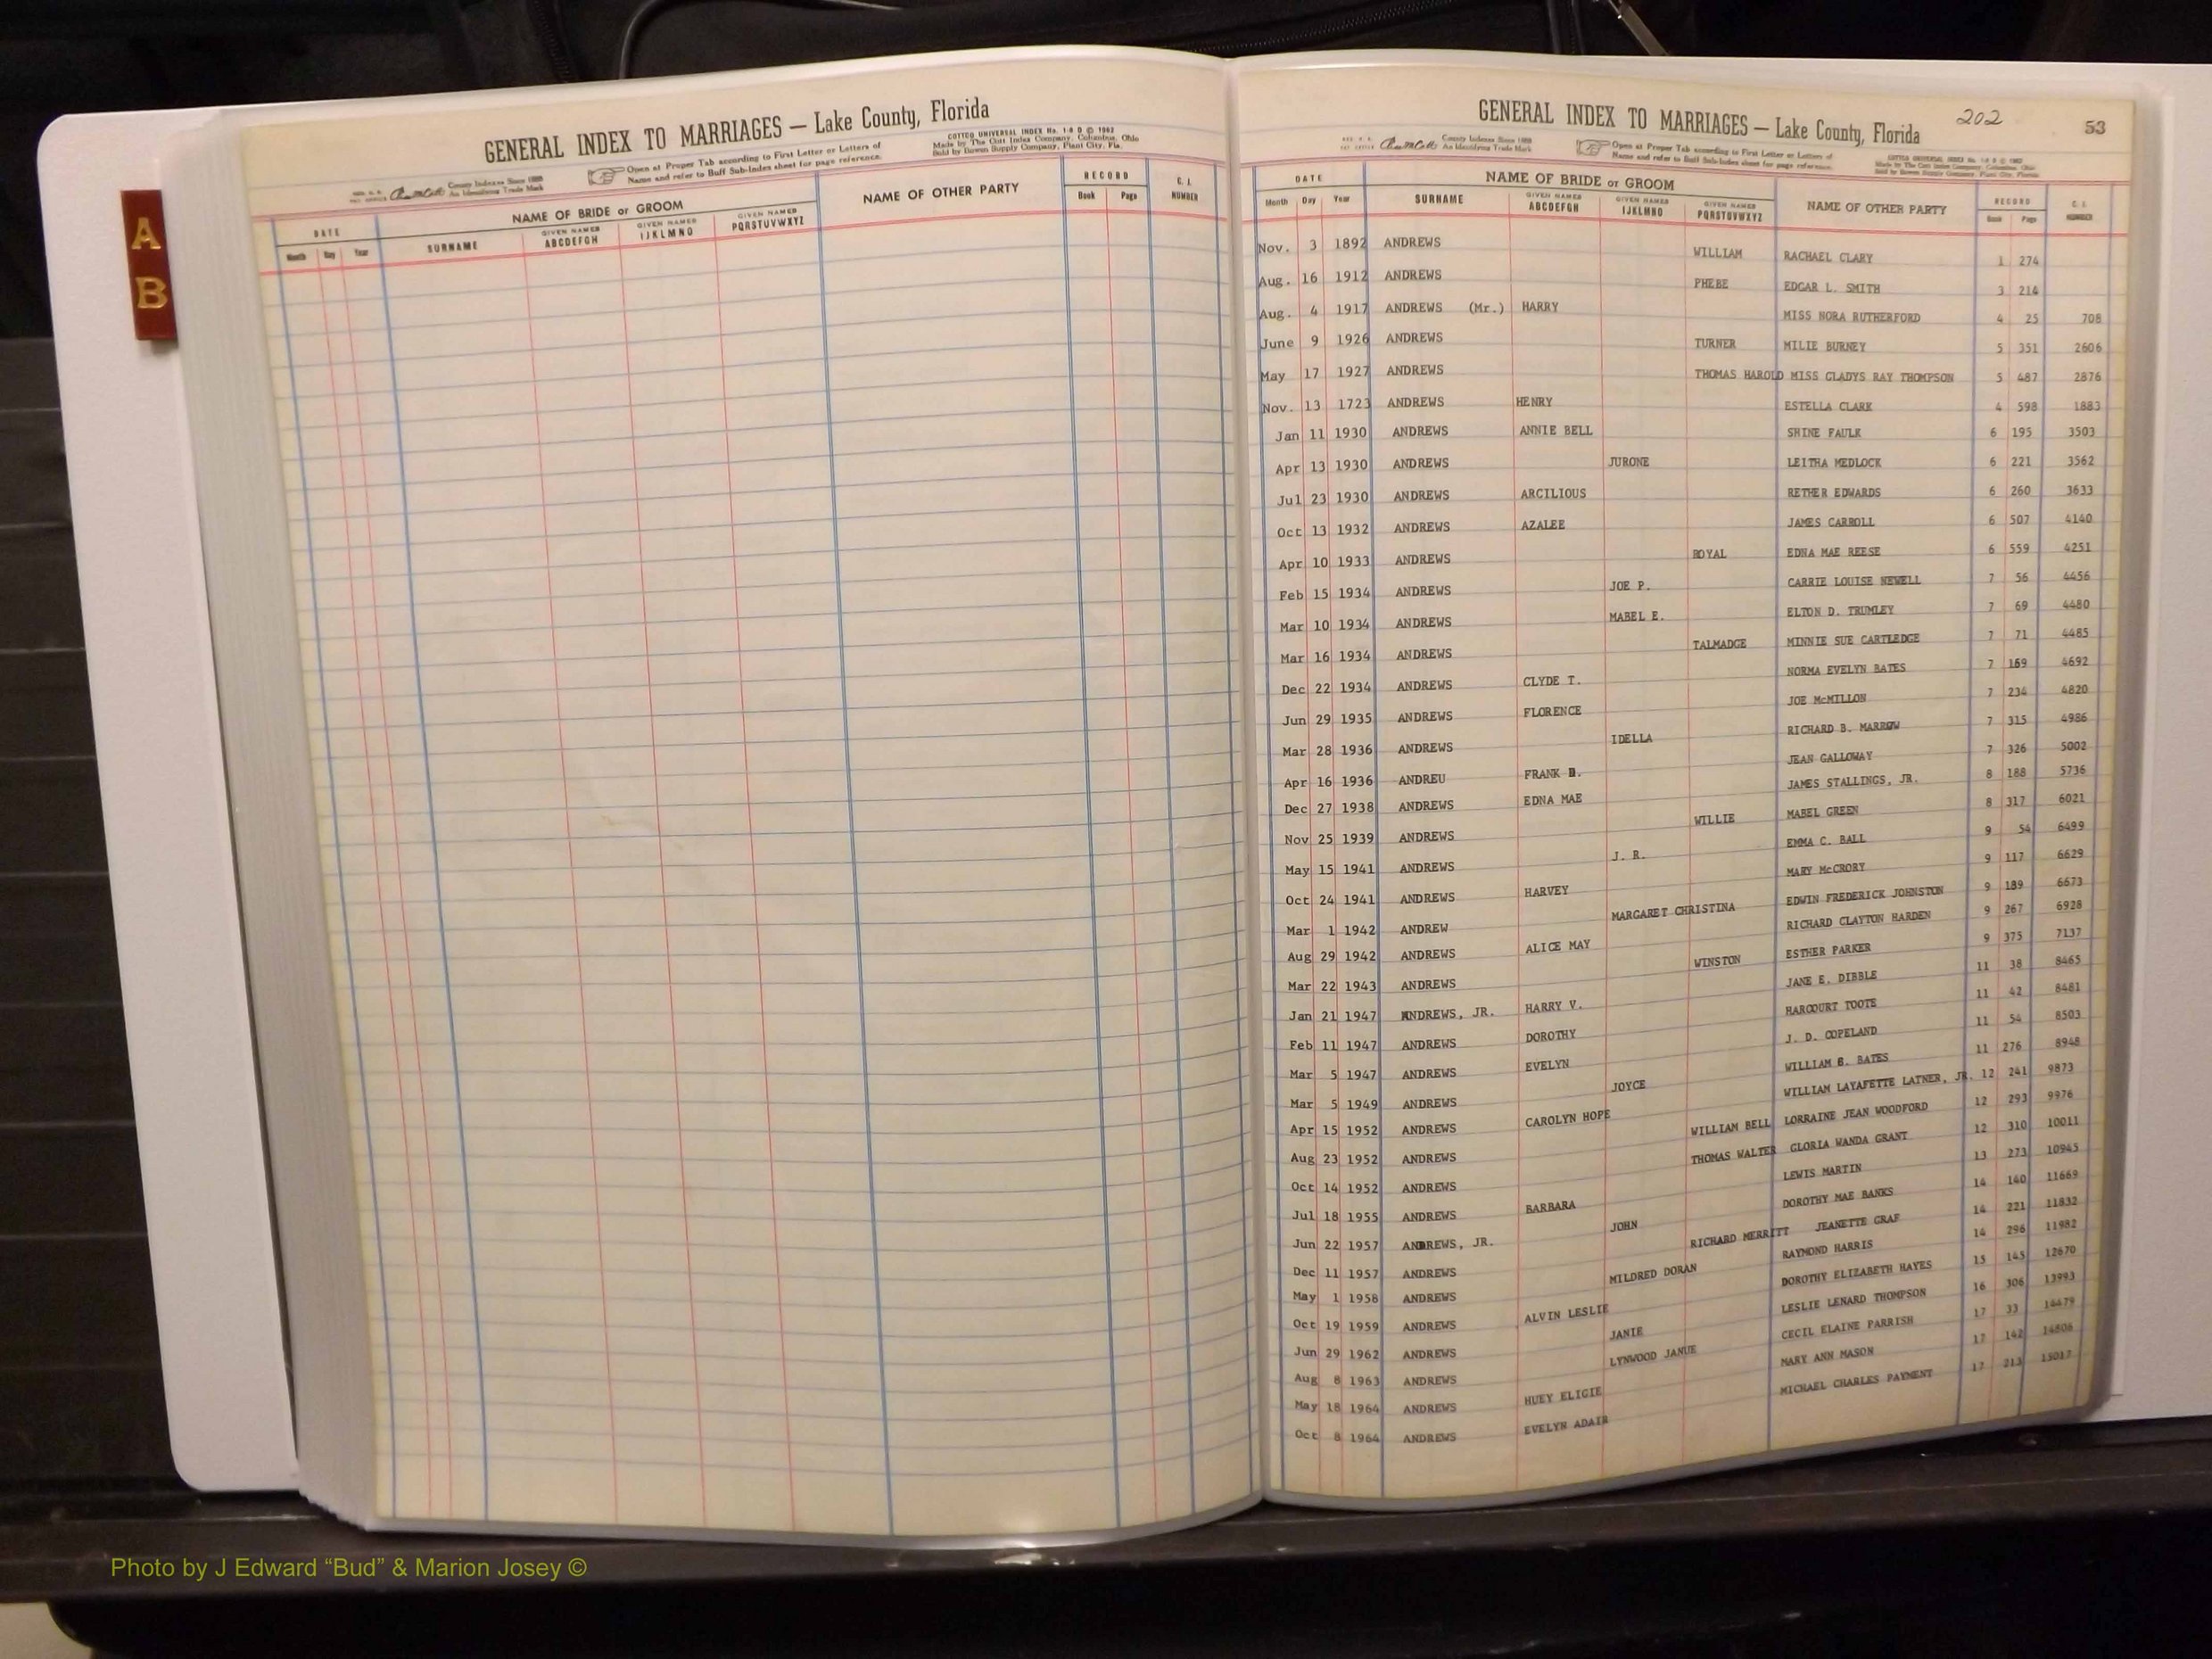 A
B
GENERAL INDEX TO MARRIAGES — Lake County, Florida
COTTCO UNIVERSAL INDEX No. 1-8 D © 1962
Made by The Cott Index Company, Columbus, Ohio
Sold by Bowen Supply Company, Plant City, Fla.
County Indexes Since 1888
An Identifying Trade Mark
Open at Proper Tab according to First Letter or Letters of
Name and refer to Buff Sub-Index sheet for page reference.
DATE NAME OF BRIDE or GROOM NAME OF OTHER PARTY RECORD C. I. NUMBER
Month Day Year SURNAME GIVEN NAMES ABCDEFGH GIVEN NAMES IJKLMNO GIVEN NAMES PQRSTUVWXYZ Book Page
GENERAL INDEX TO MARRIAGES — Lake County, Florida 202 53
County Indexes Since 1888
An Identifying Trade Mark
Open at Proper Tab according to First Letter or Letters of
Name and refer to Buff Sub-Index sheet for page reference.
DATE NAME OF BRIDE or GROOM NAME OF OTHER PARTY RECORD C. I. NUMBER
Month Day Year SURNAME GIVEN NAMES ABCDEFGH GIVEN NAMES IJKLMNO GIVEN NAMES PQRSTUVWXYZ Book Page
Nov. 3 1892 ANDREWS WILLIAM RACHAEL CLARY 1 274
Aug. 16 1912 ANDREWS PHEBE EDGAR L. SMITH 3 214
Aug. 4 1917 ANDREWS (Mr.) HARRY MISS NORA RUTHERFORD 4 25 708
June 9 1926 ANDREWS TURNER MILIE BURNEY 5 351 2606
May 17 1927 ANDREWS THOMAS HAROLD MISS GLADYS RAY THOMPSON 5 487 2876
Nov. 13 1723 ANDREWS HENRY ESTELLA CLARK 4 598 1883
Jan 11 1930 ANDREWS ANNIE BELL SHINE FAULK 6 195 3503
Apr 13 1930 ANDREWS JURONE LEITHA MEDLOCK 6 221 3562
Jul 23 1930 ANDREWS ARCILIOUS RETHER EDWARDS 6 260 3633
Oct 13 1932 ANDREWS AZALEE JAMES CARROLL 6 507 4140
Apr 10 1933 ANDREWS ROYAL EDNA MAE REESE 6 559 4251
Feb 15 1934 ANDREWS JOE P. CARRIE LOUISE NEWELL 7 56 4456
Mar 10 1934 ANDREWS MABEL E. ELTON D. TRUMLEY 7 69 4480
Mar 16 1934 ANDREWS TALMADGE MINNIE SUE CARTLEDGE 7 71 4485
Dec 22 1934 ANDREWS CLYDE T. NORMA EVELYN BATES 7 169 4692
Jun 29 1935 ANDREWS FLORENCE JOE McMILLON 7 234 4820
Mar 28 1936 ANDREWS IDELLA RICHARD B. MARROW 7 315 4986
Apr 16 1936 ANDREU FRANK D. JEAN GALLOWAY 7 326 5002
Dec 27 1938 ANDREWS EDNA MAE JAMES STALLINGS, JR. 8 188 5736
Nov 25 1939 ANDREWS WILLIE MABEL GREEN 8 317 6021
May 15 1941 ANDREWS J. R. EMMA C. BALL 9 54 6499
Oct 24 1941 ANDREWS HARVEY MARY McCRORY 9 117 6629
Mar 1 1942 ANDREW MARGARET CHRISTINA EDWIN FREDERICK JOHNSTON 9 189 6673
Aug 29 1942 ANDREWS ALICE MAY RICHARD CLAYTON HARDEN 9 267 6928
Mar 22 1943 ANDREWS WINSTON ESTHER PARKER 9 375 7137
Jan 21 1947 ANDREWS, JR. HARRY V. JANE E. DIBBLE 11 38 8465
Feb 11 1947 ANDREWS DOROTHY HARCOURT TOOTE 11 42 8481
Mar 5 1947 ANDREWS EVELYN J. D. COPELAND 11 54 8503
Mar 5 1949 ANDREWS JOYCE WILLIAM B. BATES 11 276 8948
Apr 15 1952 ANDREWS CAROLYN HOPE WILLIAM LAYAFETTE LATNER, JR. 12 241 9873
Aug 23 1952 ANDREWS WILLIAM BELL LORRAINE JEAN WOODFORD 12 293 9976
Oct 14 1952 ANDREWS THOMAS WALTER GLORIA WANDA GRANT 12 310 10011
Jul 18 1955 ANDREWS BARBARA LEWIS MARTIN 13 273 10945
Jun 22 1957 ANDREWS, JR. JOHN DOROTHY MAE BANKS 14 140 11669
Dec 11 1957 ANDREWS RICHARD MERRITT JEANETTE GRAF 14 221 11832
May 1 1958 ANDREWS MILDRED DORAN RAYMOND HARRIS 14 296 11982
Oct 19 1959 ANDREWS ALVIN LESLIE DOROTHY ELIZABETH HAYES 15 145 12670
Jun 29 1962 ANDREWS JANIE LESLIE LENARD THOMPSON 16 306 13993
Aug 8 1963 ANDREWS LYNWOOD JANUE CECIL ELAINE PARRISH 17 33 14479
May 18 1964 ANDREWS HUEY ELIGIE MARY ANN MASON 17 142 14806
Oct 8 1964 ANDREWS EVELYN ADAIR MICHAEL CHARLES PAYMENT 17 213 15017
Photo by J Edward “Bud” & Marion Josey ©